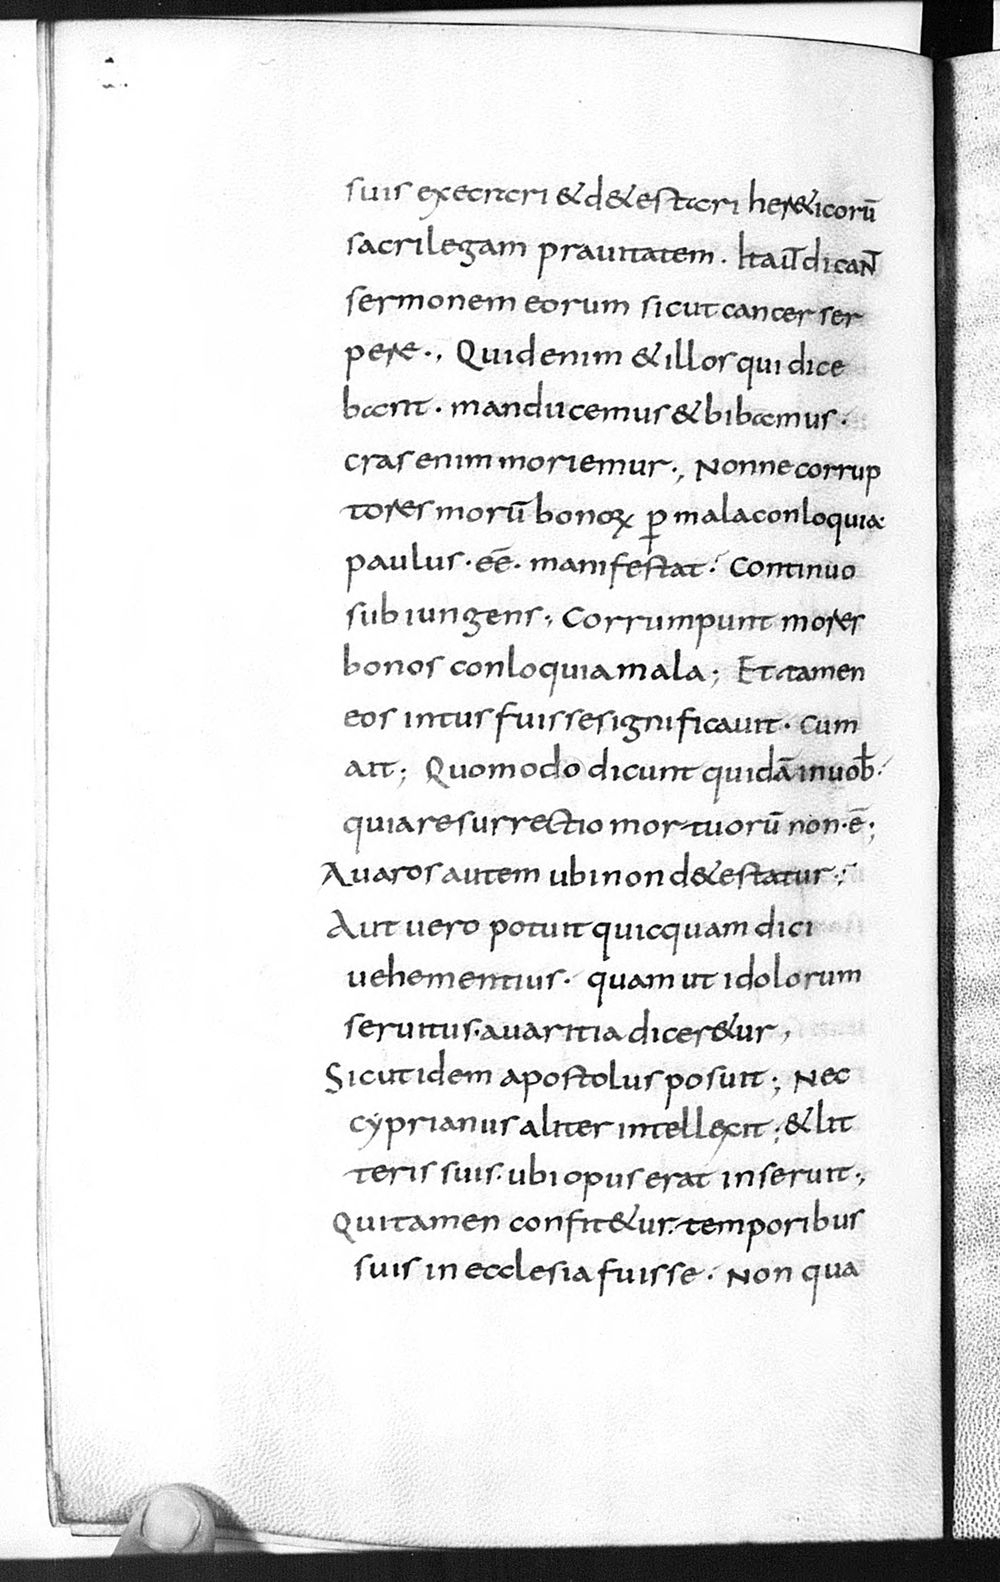 suis execrari & d&estari her&icorū
sacrilegam prauitatem. Ita ut̄ dicanT̄
sermonem eorum sicut cancer ser
pere., Quid enim & illos qui dice
bant. manducemus & bibamus.
cras enim moriemur., Nonne corrup
tores morū bonoꝝ ꝑ mala conloquia
paulus. eē. manifestat. Continuo
subiungens; Corrumpunt mores
bonos conloquia mala; Et tamen
eos intus fuisse significauit. Cum
ait; Quomodo dicunt quidā in uob̄.
quia resurrectio mortuorū non. ē;
Auaros autem ubi non d&estatur;
Aut uero potuit quicquam dici
uehementius. quam ut idolorum
seruitus. auaritia dicer&ur,
Sicut idem apostolus posuit; Nec
cyprianus aliter intellexit; & lit
teris suis. ubi opus erat inseruit.,
Qui tamen confit&ur. temporibus
suis in ecclesia fuisse. Non qua